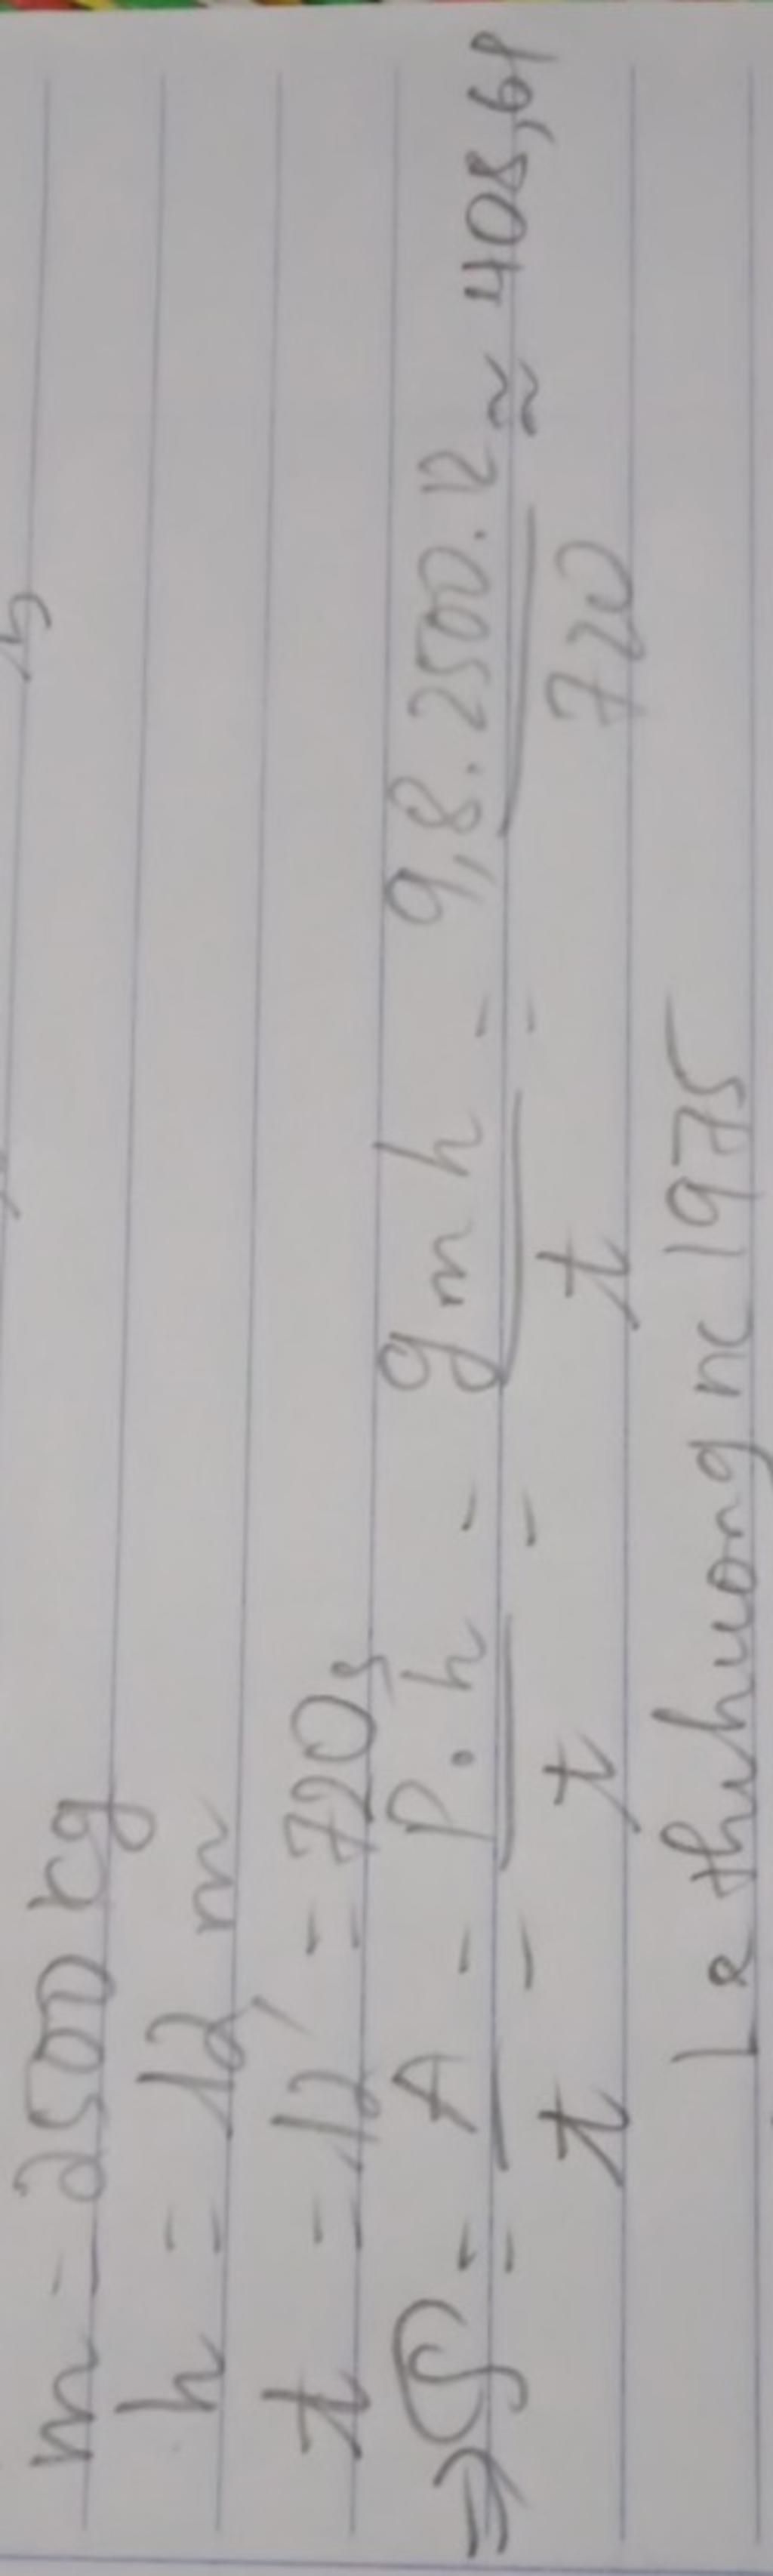 m = 2500 kg
h = 12 m
t = 12' = 720s
⇒ 𝒫 = A/t = P.h/t = gmh/t = 9,8.2500.12/720 ≈ 408,61
Le thuhuong nc 1975